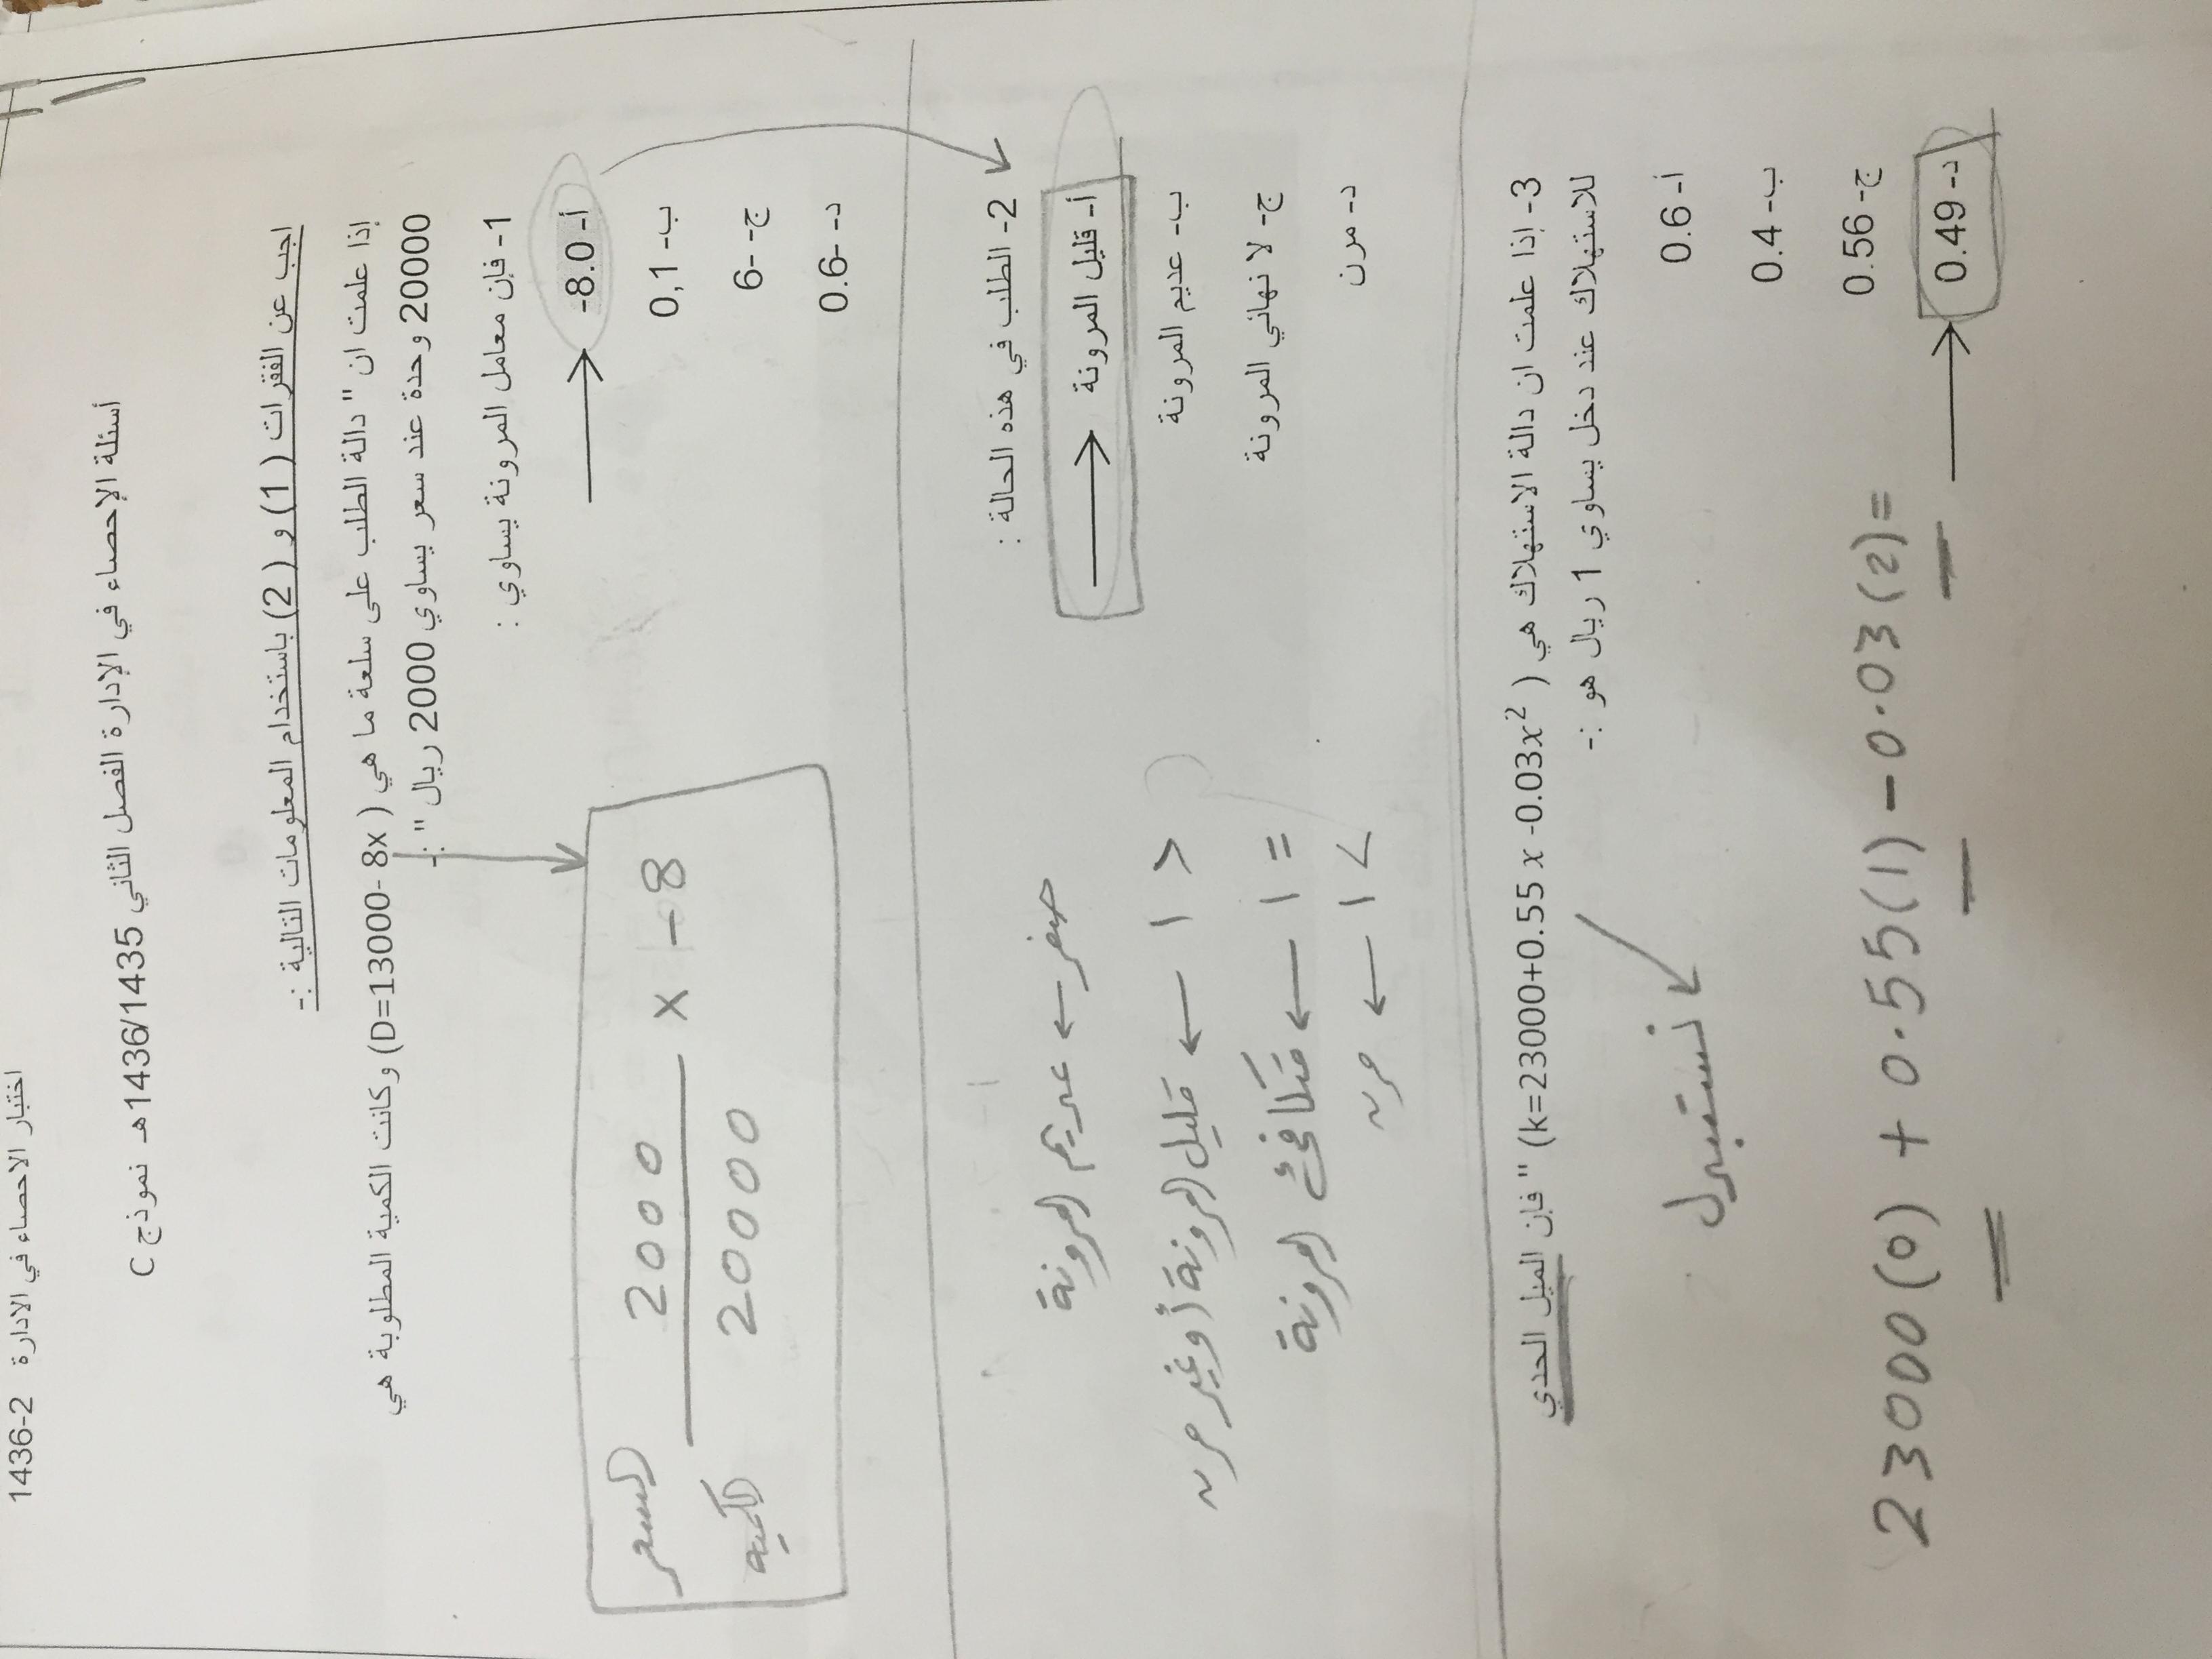 اختبار الاحصاء في الادارة 2-1436
أسئلة الإحصاء في الإدارة الفصل الثاني 1436/1435هـ نموذج C
اجب عن الفقرات (1) و (2) باستخدام المعلومات التالية :-
إذا علمت ان " دالة الطلب على سلعة ما هي ( D=13000- 8x) وكانت الكمية المطلوبة هي
20000 وحدة عند سعر يساوي 2000 ريال " :-
1- فإن معامل المرونة يساوي :
أ- 8.0-
ب- 0,1
ج- -6
د- -0.6
السعر 2000
الكمية 20000
x -8
2- الطلب في هذه الحالة :
أ- قليل المرونة
ب- عديم المرونة
ج- لا نهائي المرونة
د- مرن
صفر ← عديم المرونة
< 1 ← قليل المرونة أو غير مرن
= 1 ← متكافئ المرونة
> 1 ← مرن
3- إذا علمت ان دالة الاستهلاك هي ( k=23000+0.55 x -0.03x²) " فإن الميل الحدي
للاستهلاك عند دخل يساوي 1 ريال هو :-
أ- 0.6
ب- 0.4
ج- 0.56
د- 0.49
نستبدل
23000(0) + 0.55(1) - 0.03(2) =